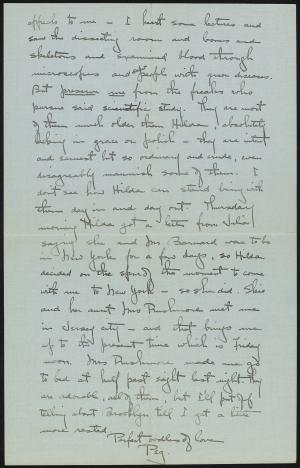 appeals to me — I heard some lectures and
saw the dissecting room and bones and
skeletons and examined blood through
microscopes and saw people with queer diseases.
But preserve me from the freaks who
pursue said scientific study. They are most
of them much older than Hilda, absolutely
lacking in grace or polish — they are intent
and earnest but so ordinary and crude, even
disagreeably mannish some of them. I
don't see how Hilda can stand being with
them day in and day out. Thursday
morning Hilda got a letter from Julia
saying she and Mrs. Barnard were to be
in New York for a few days, so Hilda
decided on the spur of the moment to come
with me to New York — so she did. She
and her aunt Mrs Rushmore met me
in Jersey City — and that brings me
up to the present time which is Friday
noon. Mrs Rushmore made me go
to bed at half past eight last night. They
are adorable, all of them, but I'll put off
telling about Brooklyn till I get a little
more rested.
Perfect oodles of love
Peg.